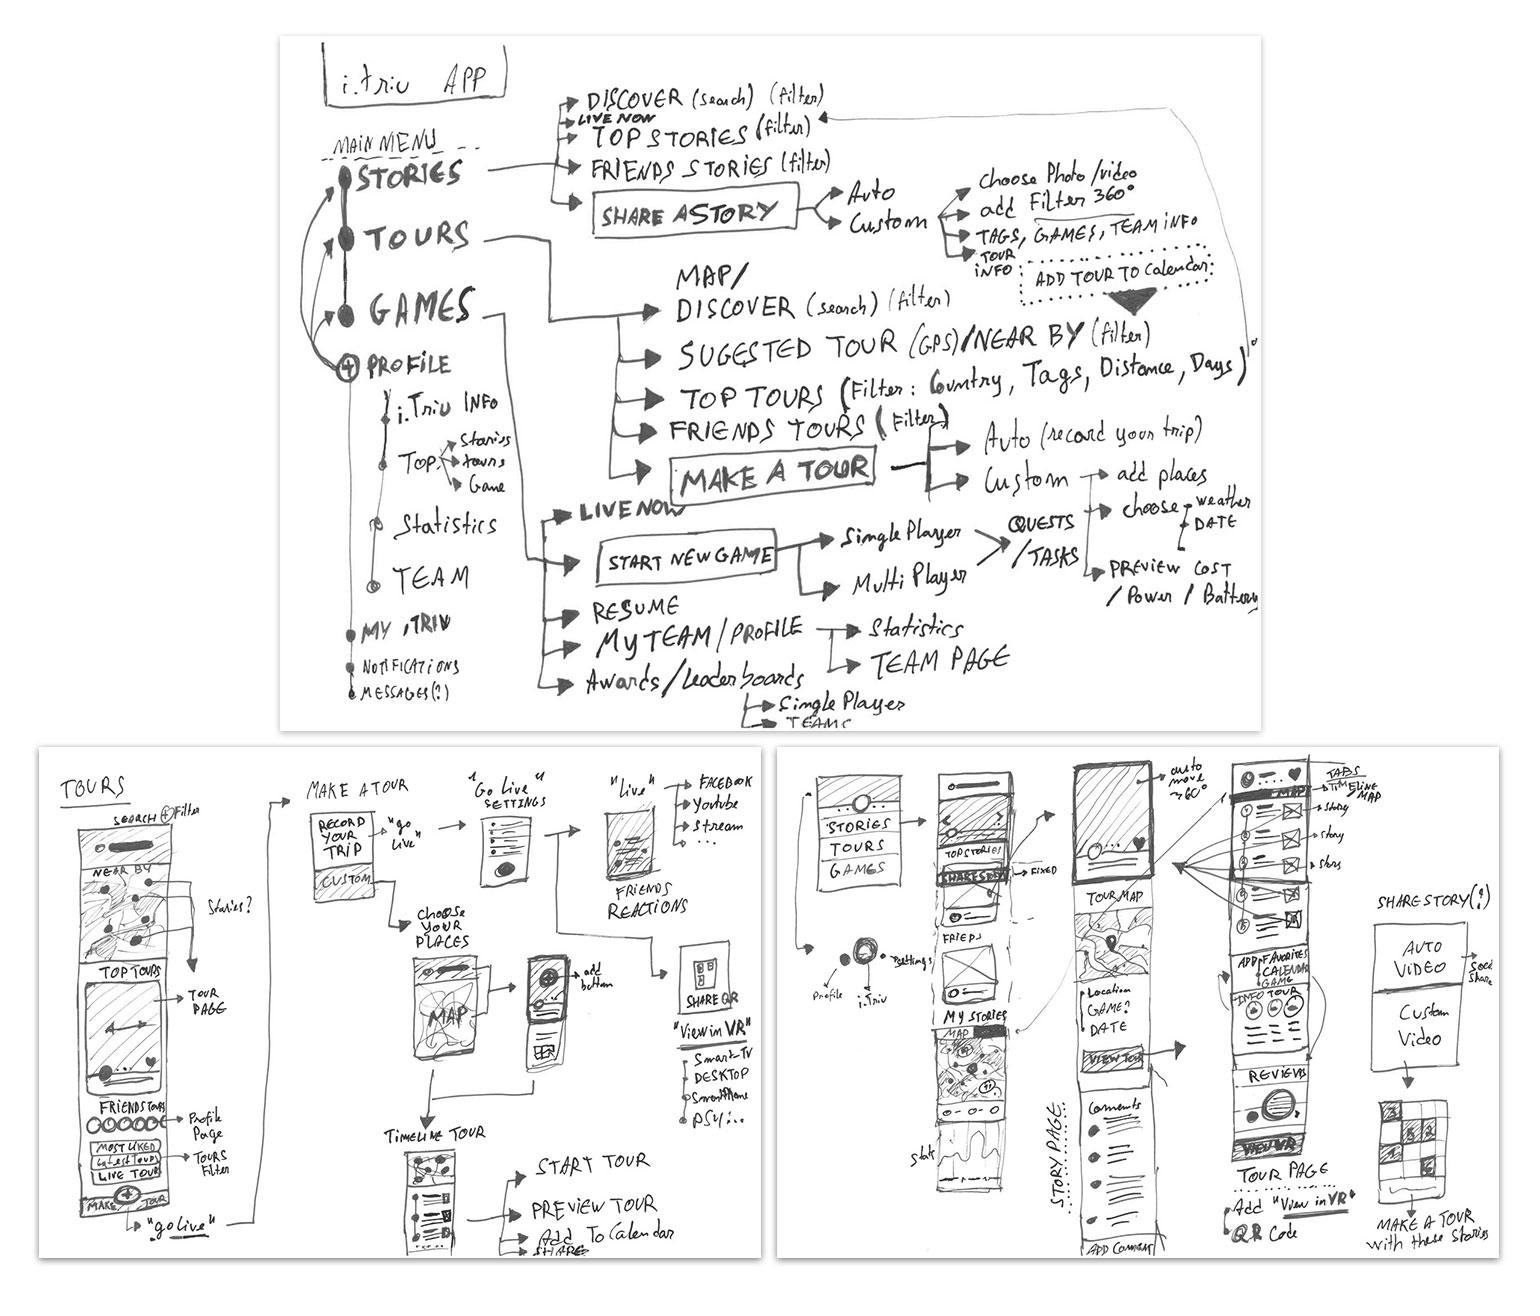 i.triv APP
MAIN MENU
STORIES
TOURS
GAMES
PROFILE
i.Triv INFO
TOP
Stories
tours
Game
Statistics
TEAM
MY iTRIV
NOTIFICATIONS
MESSAGES(?)
DISCOVER (search) (filter)
LIVE NOW
TOP STORIES (filter)
FRIENDS STORIES (filter)
SHARE A STORY
Auto
Custom
choose Photo/video
add Filter 360°
TAGS, GAMES, TEAM INFO
TOUR INFO
ADD TOUR TO Calendar
MAP/
DISCOVER (search) (filter)
SUGESTED TOUR (GPS)/NEAR BY (filter)
TOP TOURS (Filter: Country, Tags, Distance, Days)
FRIENDS TOURS (Filter)
MAKE A TOUR
Auto (record your trip)
Custom
add places
choose
weather
DATE
PREVIEW COST
/Power / Battery
LIVE NOW
START NEW GAME
Single Player
Multi Player
QUESTS
/TASKS
RESUME
MY TEAM/PROFILE
Statistics
TEAM PAGE
Awards/Leaderboards
Single Player
TEAMS
TOURS
SEARCH
Filter
NEAR BY
Stories?
TOP TOURS
TOUR
PAGE
FRIENDS TOURS
Profile
Page
MOST LIKED
Latest Tours
LIVE TOUR
TOURS
Filter
MAKE TOUR
"go live"
MAKE A TOUR
RECORD
YOUR
TRIP
CUSTOM
"go
live"
"Go Live"
SETTINGS
"Live"
FACEBOOK
Youtube
Stream
...
FRIENDS
REACTIONS
choose
YOUR
PLACES
MAP
add
button
SHARE QR
"View in VR"
Smart TV
DESKTOP
SmartPhone
PSV...
TIMELINE TOUR
START TOUR
PREVIEW TOUR
Add To Calendar
SHARE
STORIES
TOURS
GAMES
Profile
i.Triv
settings
TOP STORIES
FIXED
MY STORIES
MAP
auto
move
~60°
TOUR MAP
Location
GAME?
DATE
VIEW TOUR
Coments
ADD Coment
STORY PAGE
TABS
TIMELINE
MAP
MAP
Story
Story
ADD
FAVORITES
CALENDAR
GAME
INFO TOUR
REVIEWS
VIEW VR
TOUR PAGE
Add "View in VR"
QR Code
SHARE STORY(?)
AUTO
VIDEO
Custom
Video
MAKE A TOUR
with these Stories